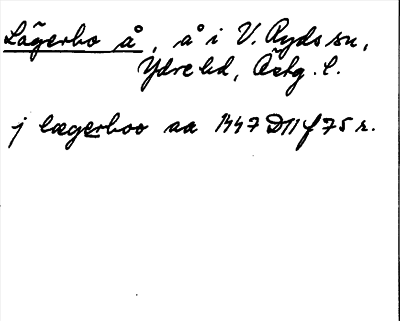 Lägerbo å, å i V. Ryds sn,
Ydre hd, Östg. l.
j lægerboo aa 1447 D11 f 75 r.